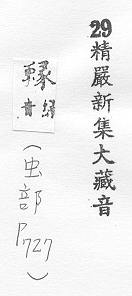 29精嚴新集大藏音
音
(虫部
P727)